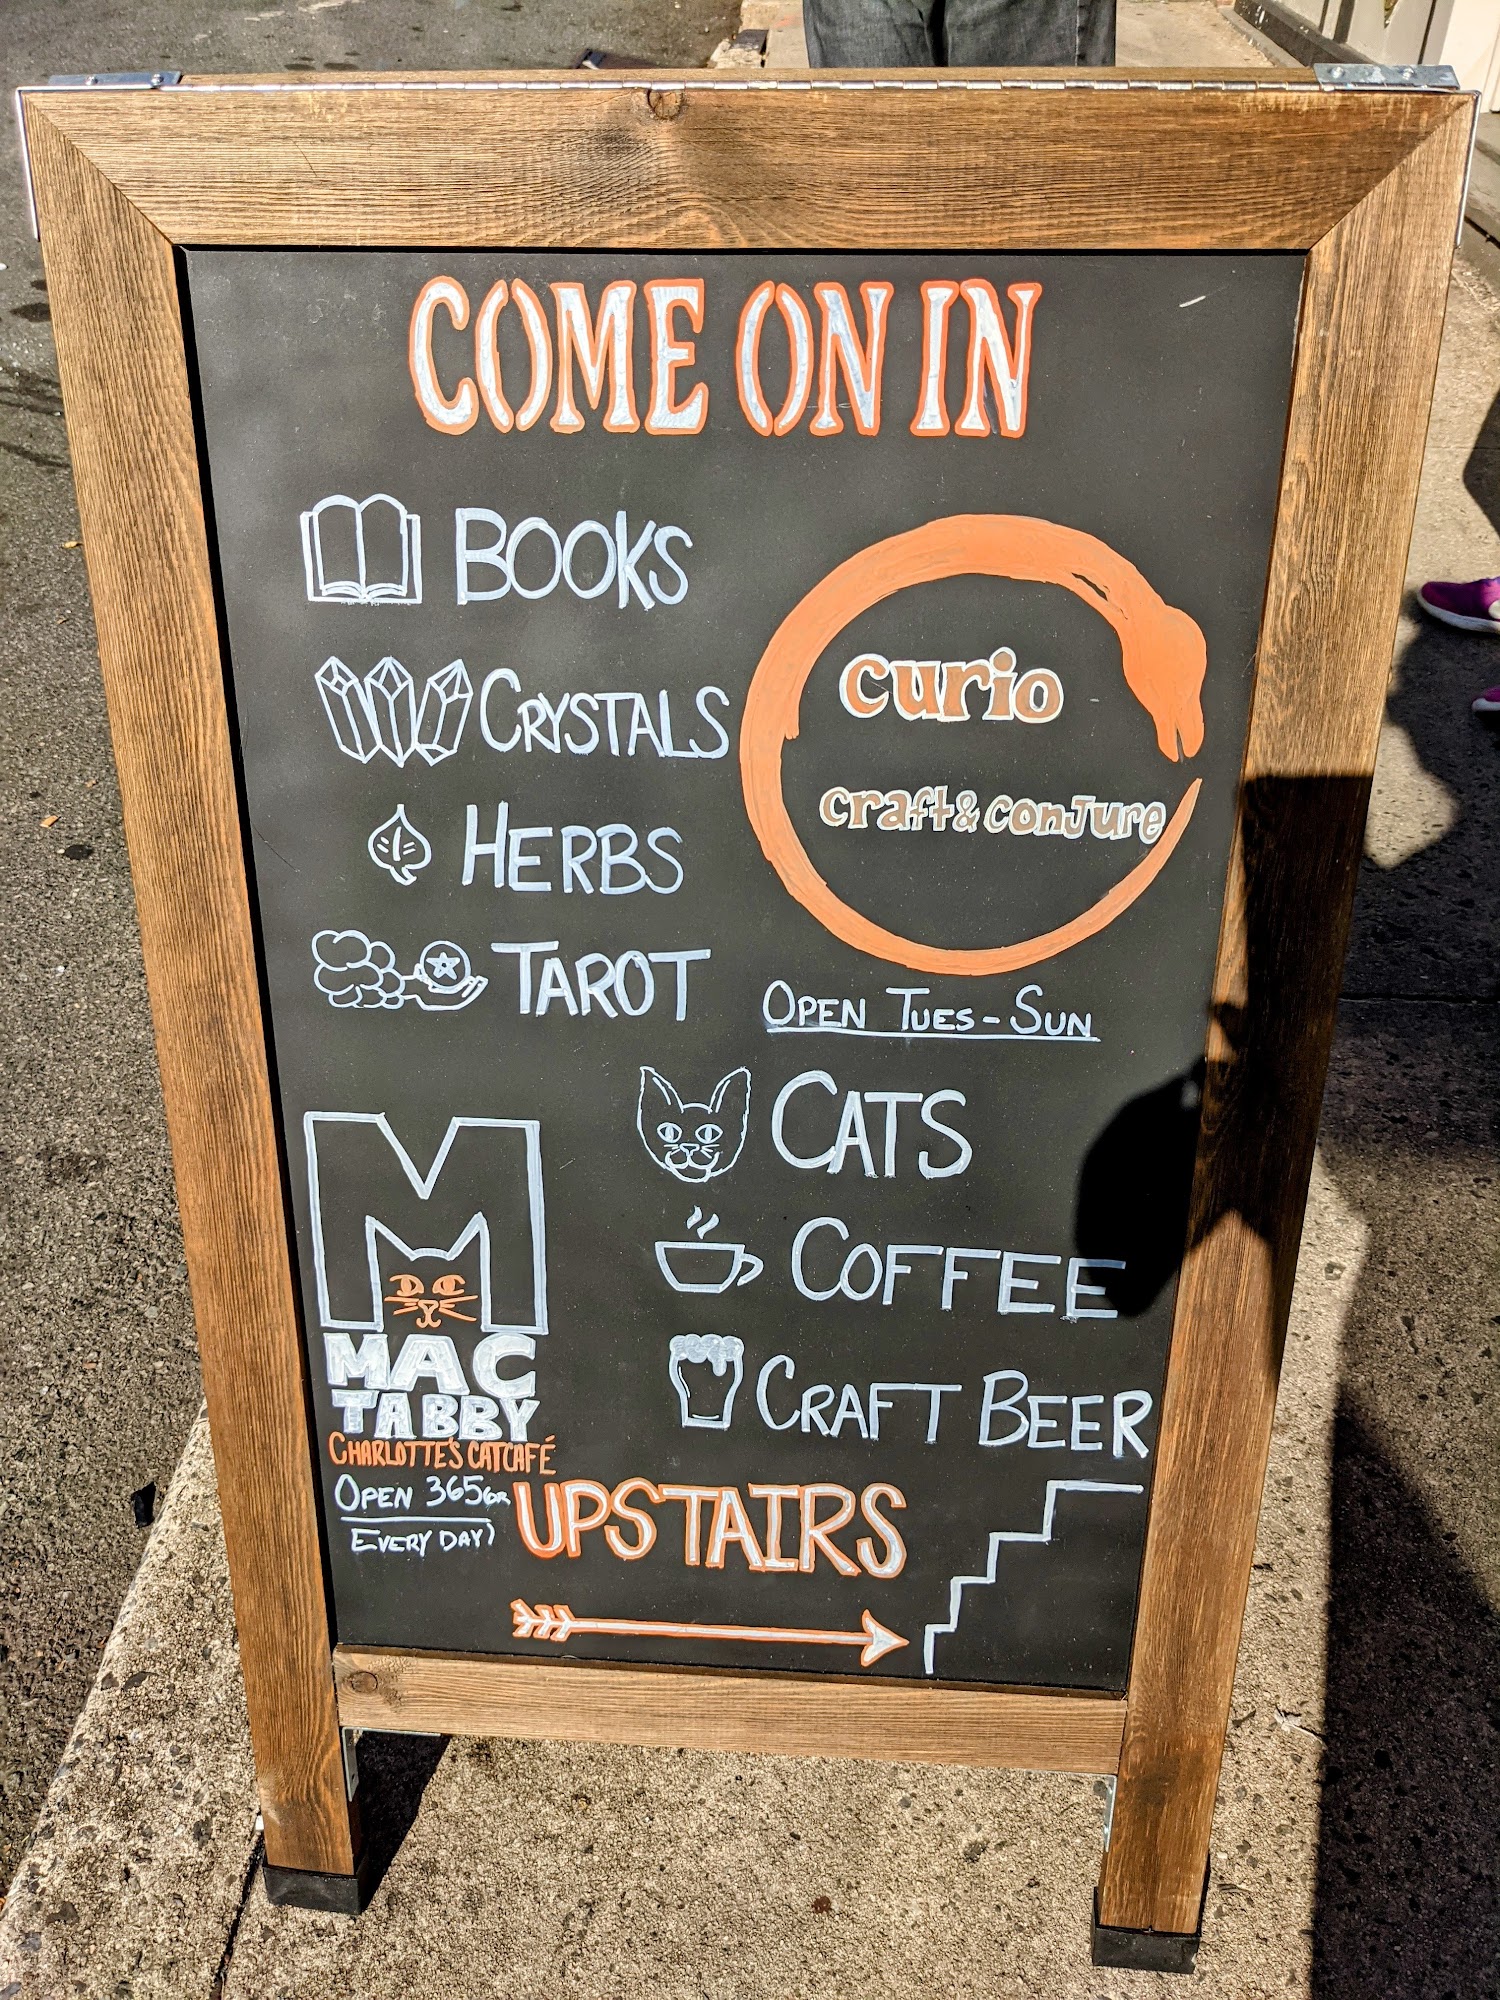 COME ON IN
BOOKS
CRYSTALS
HERBS
TAROT
curio
craft & conjure
OPEN TUES - SUN
CATS
COFFEE
CRAFT BEER
M
MAC
TABBY
CHARLOTTE'S CAT CAFÉ
OPEN 365 or
EVERY DAY)
UPSTAIRS